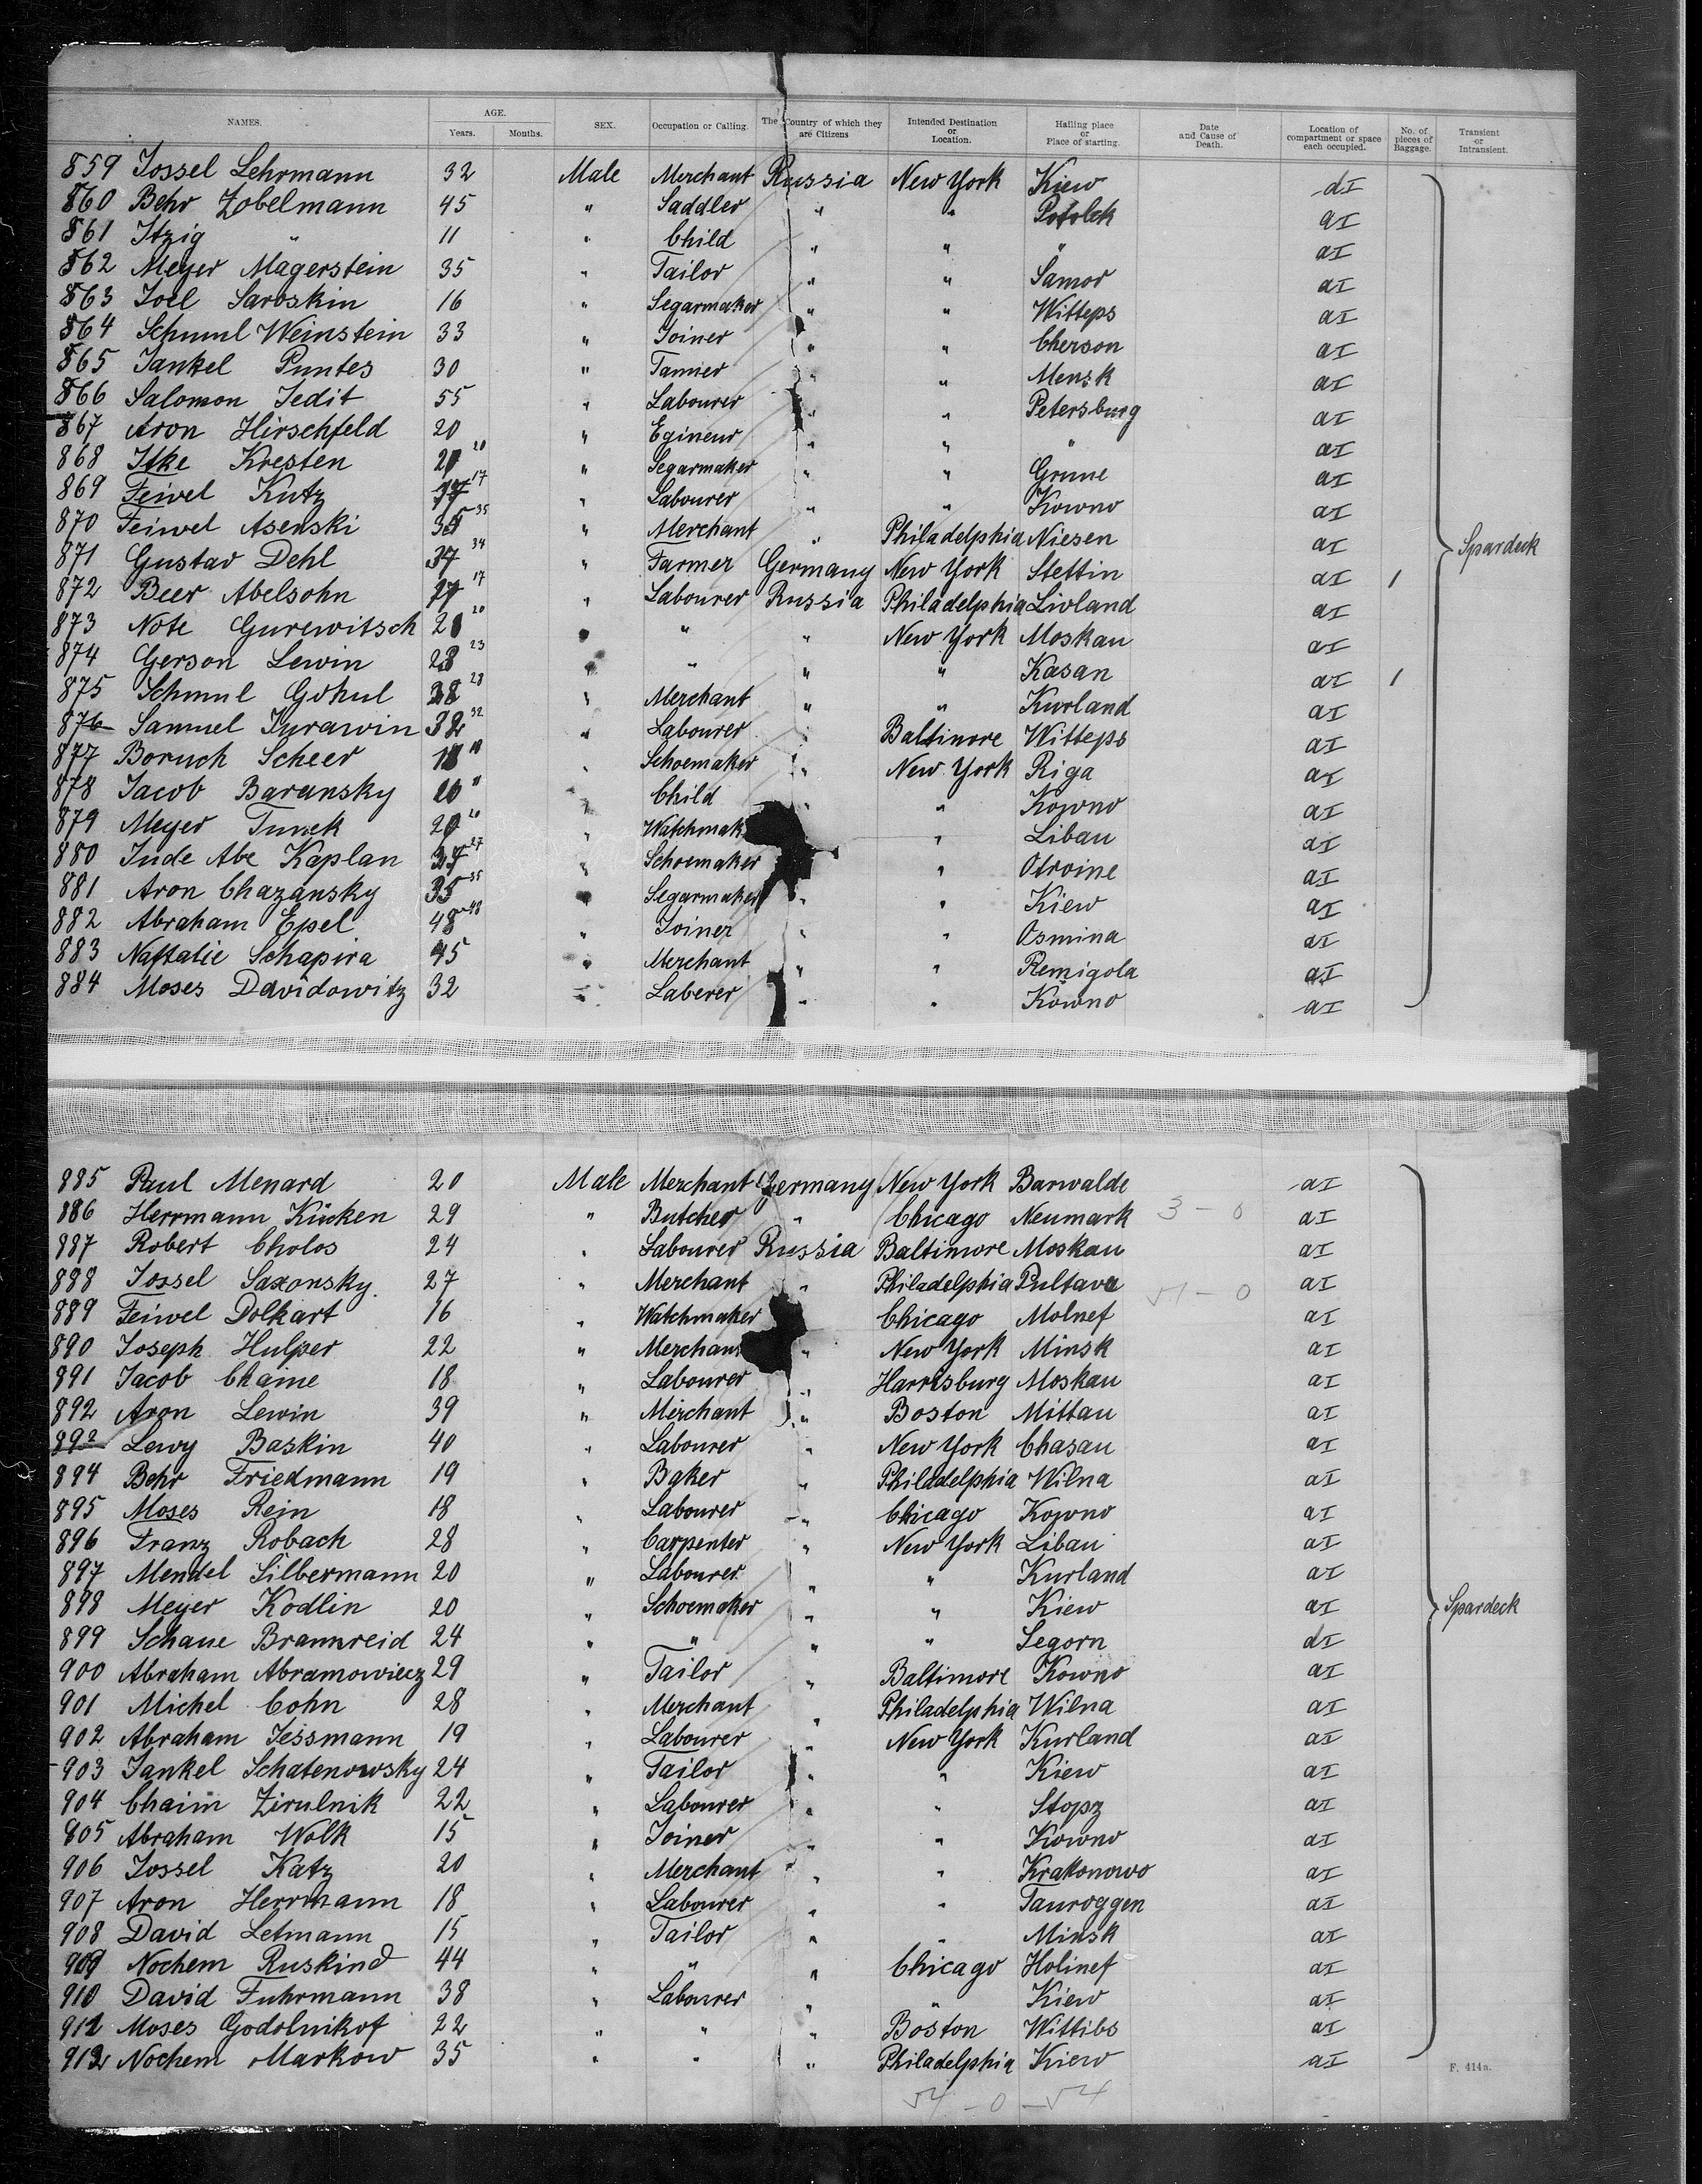 NAMES. AGE. Years. Months. SEX. Occupation or Calling. The Country of which they are Citizens Intended Destination or Location. Hailing place or Place of starting. Date and Cause of Death. Location of compartment or space each occupied. No. of pieces of Baggage. Transient or Intransient.
859 Jossel Lehrmann 32 Male Merchant Russia New York Kiew dI
860 Behr Zobelmann 45 " Saddler " " Potolck aI
861 Itzig " 11 " Child " " " aI
862 Meyer Magerstein 35 " Tailor " " Samor aI
863 Joel Saroskin 16 " Segarmaker " " Witteps aI
864 Schmul Weinstein 33 " Joiner " " Cherson aI
865 Jankel Puntes 30 " Tanner " " Mensk aI
866 Salomon Jedit 55 " Labourer " " Petersburg aI
867 Aron Hirschfeld 20 " Egineur " " " aI
868 Itke Kresten 20 " Segarmaker " " Grune aI
869 Feiwel Kutz 17 " Labourer " " Kowno aI
870 Feiwel Asenski 35 " Merchant " Philadelphia Niesen aI
871 Gustav Dehl 34 " Farmer Germany New York Stettin aI 1
872 Beer Abelsohn 17 " Labourer Russia Philadelphia Livland aI
873 Note Gurewitsch 20 " " " New York Moskau aI
874 Gerson Lewin 23 " " " " Kasan aI 1
875 Schmul Gohul 28 " Merchant " " Kurland aI
876 Samuel Jurawin 32 " Labourer " Baltimore Witteps aI
877 Boruch Scheer 18 " Schoemaker " New York Riga aI
878 Jacob Baransky " Child " " Kowno aI
879 Meyer Tunek 20 " Watchmak " Libau aI
880 Jude Abe Kaplan 27 " Schoemaker " Otroine aI
881 Aron Chazansky 35 " Segarmaker " " Kiew aI
882 Abraham Epel 48 " Joiner " " Osmina aI
883 Naftalie Schapira 45 " Merchant " " Remigola aI
884 Moses Davidowitz 32 " Laberer " " Kowno aI
Spardeck
885 Paul Menard 20 Male Merchant Germany New York Barwalde aI
886 Herrmann Kücken 29 " Butcher " Chicago Neumark 3 - 0 aI
887 Robert Cholos 24 " Labourer Russia Baltimore Moskau aI
888 Jossel Saxonsky. 27 " Merchant " Philadelphia Pultava 51 - 0 aI
889 Feiwel Dolkart 16 " Watchmaker Chicago Molnef aI
890 Joseph Hulper 22 " Merchant " New York Minsk aI
891 Jacob Chame 18 " Labourer " Harrisburg Moskau aI
892 Aron Lewin 39 " Merchant " Boston Mittau aI
893 Lewy Baskin 40 " Labourer " New York Chasau aI
894 Behr Friedmann 19 " Baker " Philadelphia Wilna aI
895 Moses Rein 18 " Labourer " Chicago Kowno aI
896 Franz Robach 28 " Carpenter " New York Libau aI
897 Mendel Silbermann 20 " Labourer " " Kurland aI
898 Meyer Kodlin 20 " Schoemaker " " Kiew aI
899 Schaue Brannreid 24 " " " " Segorn dI
900 Abraham Abramowiecz 29 " Tailor " Baltimore Kowno aI
901 Michel Cohn 28 " Merchant " Philadelphia Wilna aI
902 Abraham Jessmann 19 " Labourer " New York Kurland aI
903 Jankel Schatenowsky 24 " Tailor " " Kiew aI
904 Chaim Zirulnik 22 " Labourer " " Stopz aI
905 Abraham Wolk 15 " Joiner " " Kowno aI
906 Jossel Katz 20 " Merchant " " Krakonowo aI
907 Aron Herrmann 18 " Labourer " " Tauroggen aI
908 David Letmann 15 " Tailor " " Minsk aI
909 Nochem Ruskind 44 " " " Chicago Holinef aI
910 David Fuhrmann 38 " Labourer " " Kiew aI
911 Moses Godolnikof 22 " " " Boston Wittibs aI
912 Nochem Markow 35 " " " Philadelphia Kiew aI
Spardeck
F. 414a.
54 - 0 - 54